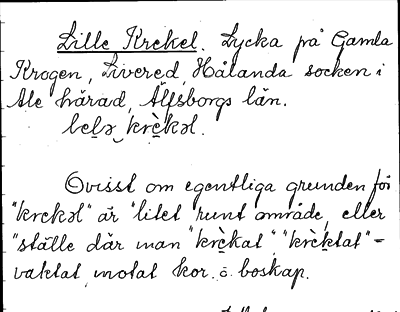 Lille Krekel. Lycka på Gamla
Krogen, Livered, Hålanda socken i
Ale härad, Älfsborgs län.
lɛlə krèkəl.
Ovisst om egentliga grunden för
"krekəl" är "litet runt område, eller
"ställe där man "krèkat", "krèktat" =
vaktat, motat kor. o. boskap.